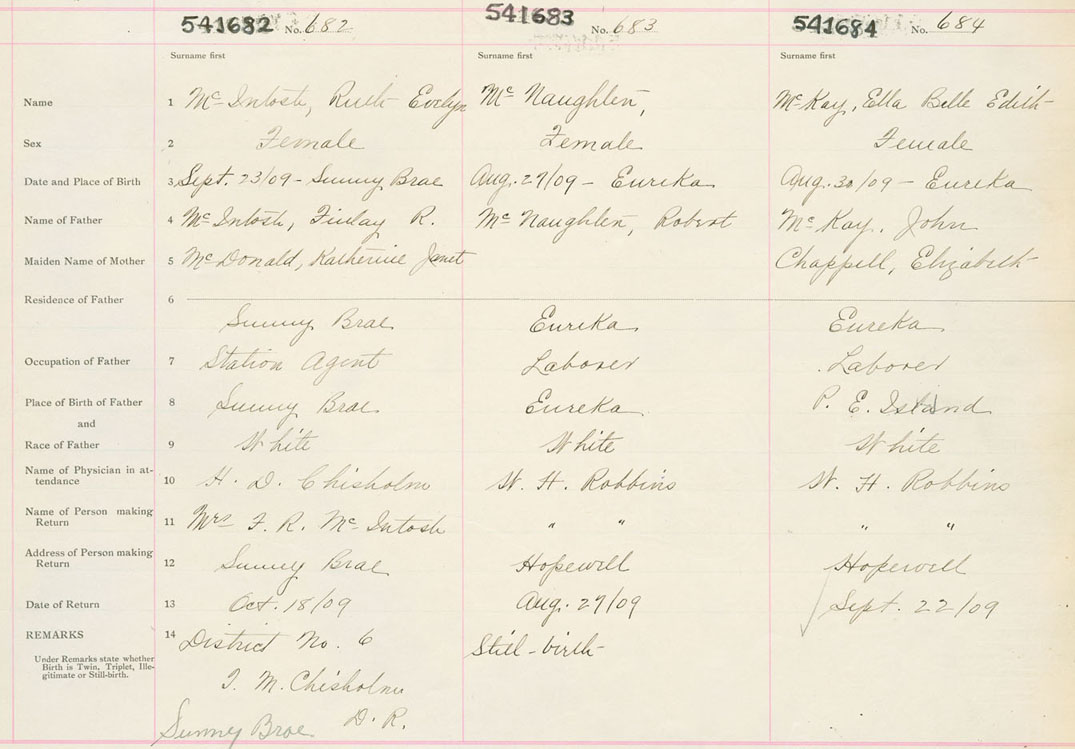 541682 No. 682 541683 No. 683 541684 No. 684
Surname first Surname first Surname first
Name 1 McIntosh, Ruth Evelyn McNaughten, McKay, Ella Belle Edith
Sex 2 Female Female Female
Date and Place of Birth 3 Sept. 23/09 - Sunny Brae Aug. 27/09 - Eureka Aug. 30/09 - Eureka
Name of Father 4 McIntosh, Finlay R. McNaughten, Robert McKay, John
Maiden Name of Mother 5 McDonald, Katherine Janet Chappell, Elizabeth
Residence of Father 6
Sunny Brae Eureka Eureka
Occupation of Father 7 Station Agent Laborer Laborer
Place of Birth of Father 8 Sunny Brae Eureka P. E. Island
and
Race of Father 9 White White White
Name of Physician in at-
tendance 10 H. D. Chisholm W. H. Robbins W. H. Robbins
Name of Person making
Return 11 Mrs F. R. McIntosh " " " "
Address of Person making
Return 12 Sunny Brae Hopewell Hopewell
Date of Return 13 Oct. 18/09 Aug. 27/09 Sept. 22/09
REMARKS 14 District No. 6 Still-birth
Under Remarks state whether
Birth is Twin, Triplet, Ille-
gitimate or Still-birth.
M. Chisholm
D. R.
Sunny Brae